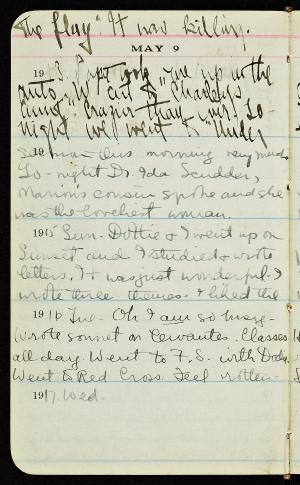 the flag". It was killing.
MAY 9
1913. Papa took me up in the
auto. We eat & Shaddys
aunt. Crazier than ever. To
night we went to "Under
19 man this morning very much.
To-night Dr. Ida Scudder,
Marion's cousin spoke and she
was the loveliest woman.
1915 Sun. Dottie & I went up on
Sunset and I studied & wrote
letters, It was just wonderful. I
wrote three themes. I liked the
1916 Tue. Oh I am so busy.
Wrote sonnet on Cervantes. Classes
all day. Went to F.S. with Dot.
Went to Red Cross. Feel rotten.
1917. Wed.